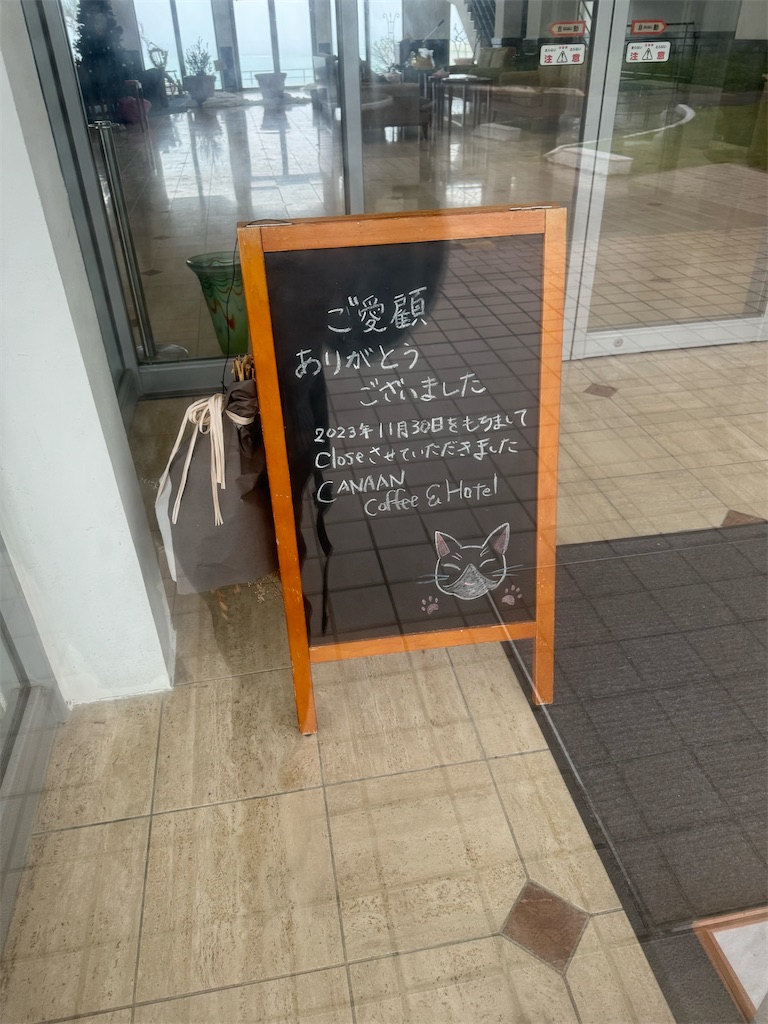 自動
自動
注意
注意
ご愛顧
ありがとう
ございました
2023年11月30日をもちまして
Closeさせていただきました
CANAAN
Coffee & Hotel